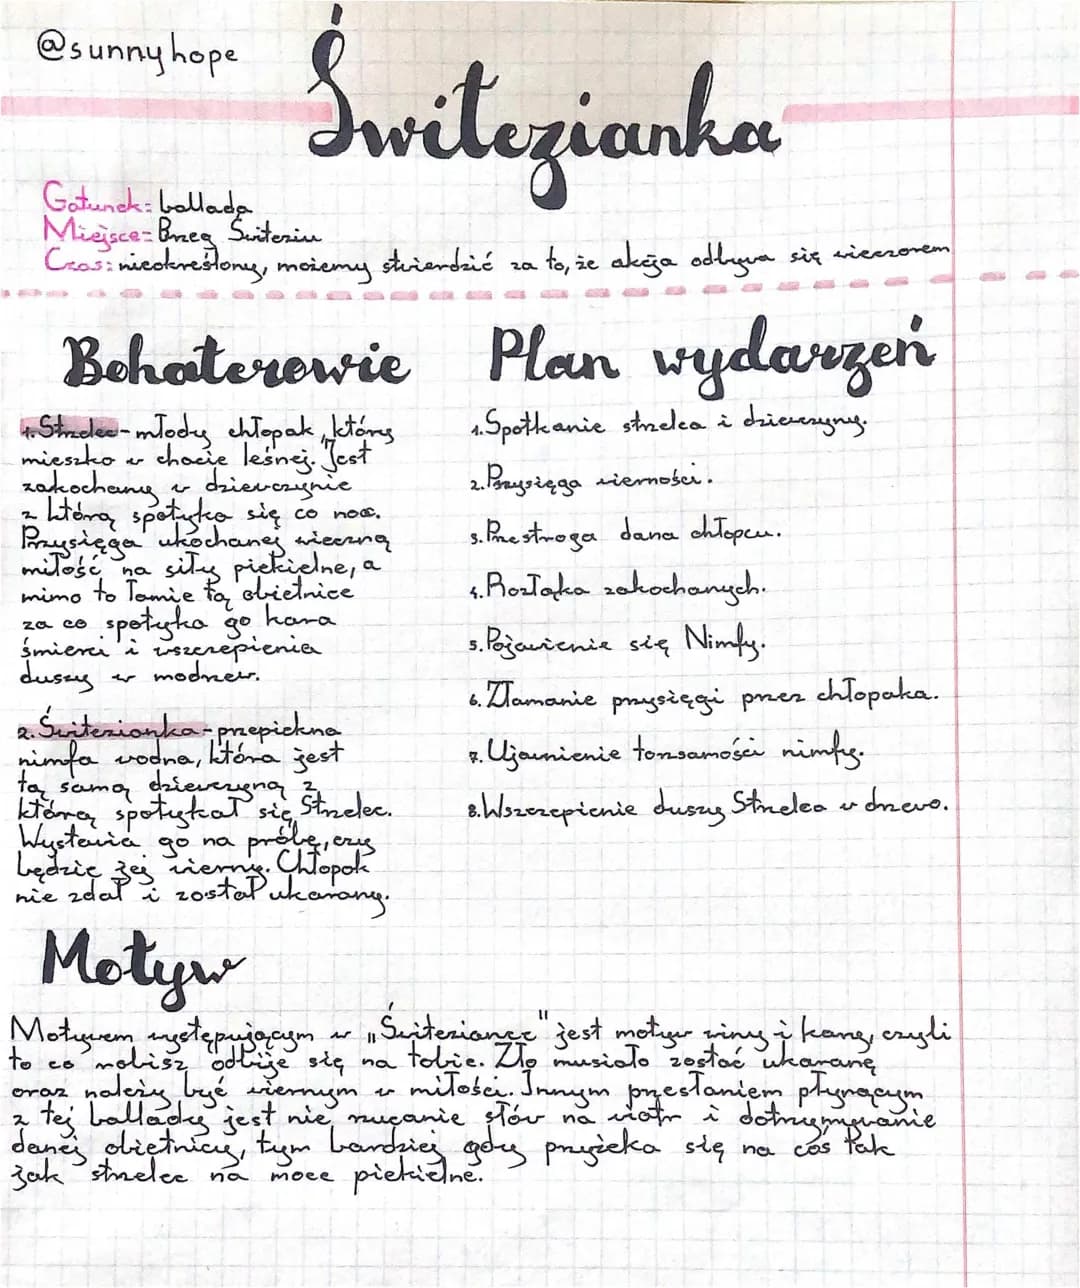 @sunnyhope
Świtezianka
Gatunek: ballada
Miejsce: Brzeg Świtezia
Czas: nieokreślony, możemy stwierdzić za to, że akcja odbywa się wieczorem
Bohaterowie
1. Strzelec - młody chłopak, który
mieszka w chacie leśnej. Jest
zakochany w dziewczynie
z którą spotyka się co noc.
Przysięga ukochanej wieczną
miłość na siły piekielne, a
mimo to łamie tą obietnice
za co spotyka go kara
śmierci i wszczepienia
duszy w modrzew.
2. Świtezianka - przepiękna
nimfa wodna, która jest
tą samą dziewczyną z
którą spotykał się Strzelec.
Wystawia go na próbę, czy
będzie jej wierny. Chłopak
nie zdał i został ukarany.
Plan wydarzeń
1. Spotkanie strzelca i dziewczyny.
2. Przysięga wierności.
3. Przestroga dana chłopcu.
4. Rozłąka zakochanych.
5. Pojawienie się Nimfy.
6. Złamanie przysięgi przez chłopaka.
7. Ujawnienie tożsamości nimfy.
8. Wszczepienie duszy Strzelca w drzewo.
Motyw
Motywem występującym w „Świteziance" jest motyw winy i kary, czyli
to co robisz odbije się na tobie. Zło musiało zostać ukarane
oraz należy być wiernym w miłości. Innym przesłaniem płynącym
z tej ballady jest nie rzucanie słów na wiatr i dotrzymywanie
danej obietnicy, tym bardziej gdy przyżeka się na coś tak
jak strzelec na moce piekielne.